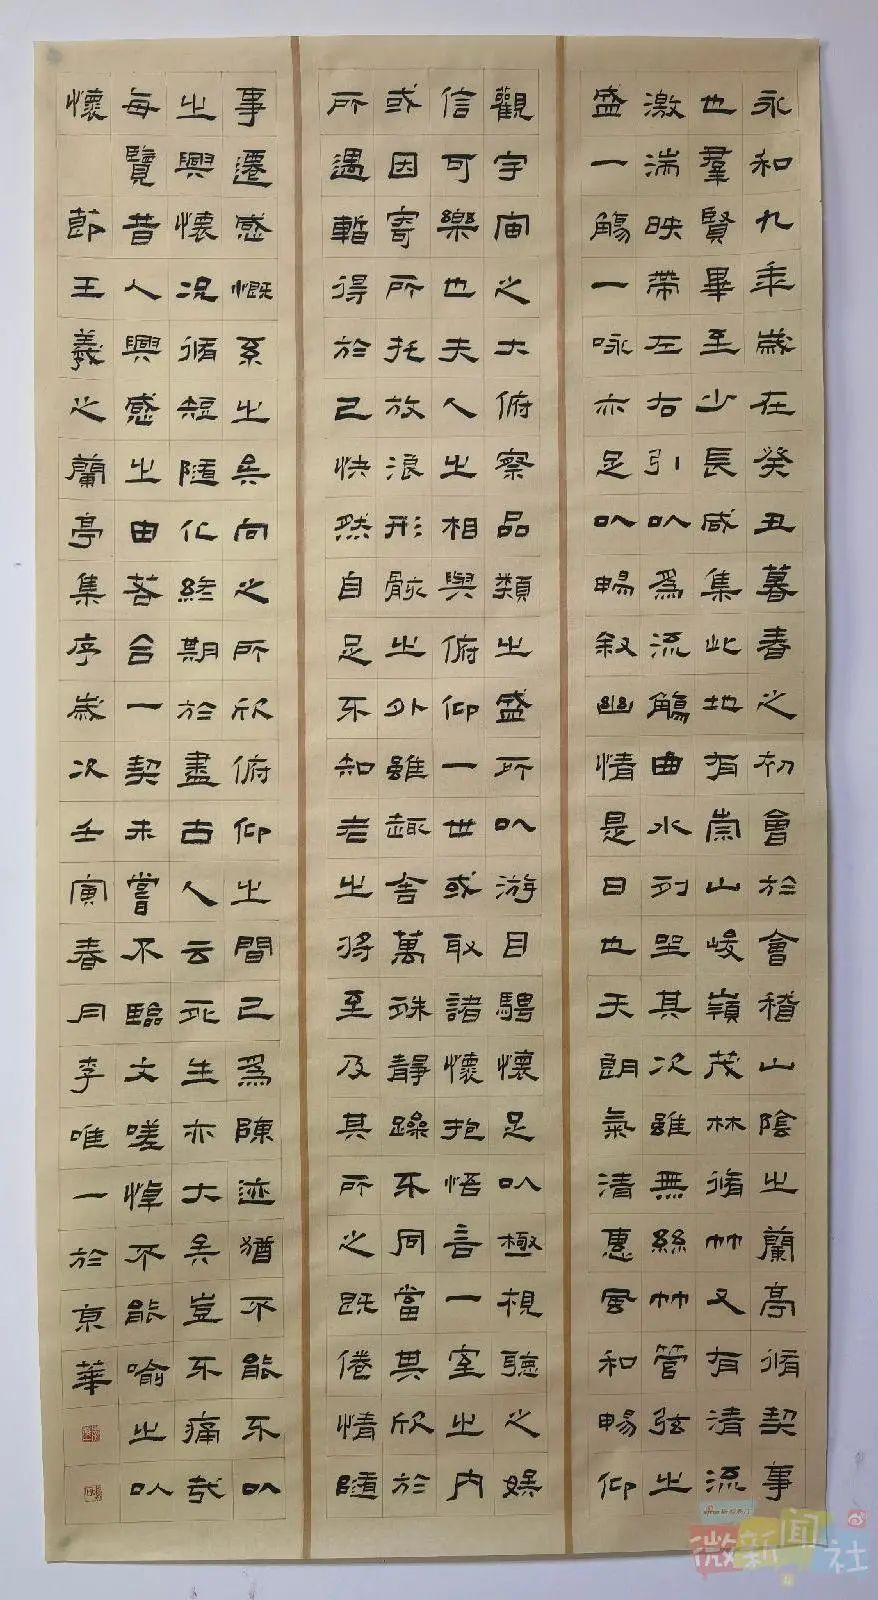 永和九年歲在癸丑暮春之初會於會稽山陰之蘭亭脩契事
也羣賢畢至少長咸集此地有崇山峻嶺茂林脩竹又有清流
激湍映帶左右引以爲流觴曲水列坐其次雖無絲竹管弦之
盛一觴一咏亦足以暢叙幽情是日也天朗氣清惠風和暢仰
觀宇宙之大俯察品類之盛所以游目騁懷足以極視聽之娛
信可樂也夫人之相與俯仰一世或取諸懷抱悟言一室之内
或因寄所托放浪形骸之外雖趣舍萬殊靜躁不同當其欣於
所遇暫得於己快然自足不知老之將至及其所之既倦情隨
事遷感慨系之矣向之所欣俯仰之間已爲陳迹猶不能不以
之興懷況脩短隨化終期於盡古人云死生亦大矣豈不痛哉
每覽昔人興感之由若合一契未嘗不臨文嗟悼不能喻之以
懷 節王羲之蘭亭集序歲次壬寅春月李唯一於京華
微新闻社